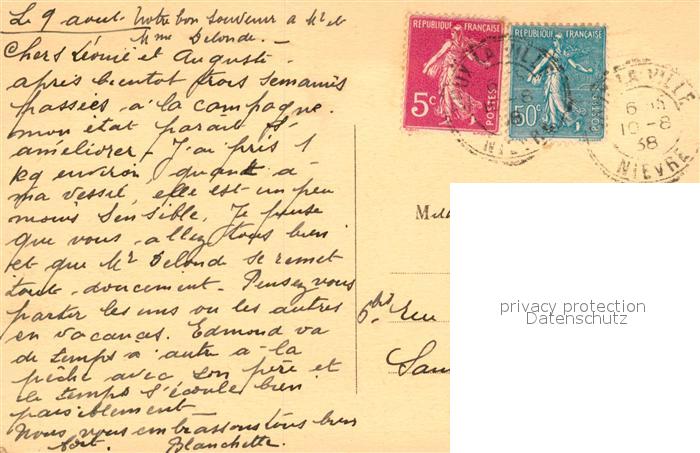 Le 9 août. Notre bon souvenir à Mr et
Mme Delonde. -
Chers Léonie et Auguste
après bientôt trois semaines
passées à la campagne
mon état paraît s'
améliorer. J'ai pris 1
kg environ, quant à
ma vessie, elle est un peu
moins sensible. Je pense
que vous allez tous bien
et que Mr Delond se remet
tout doucement. Pensez vous
partir les uns ou les autres
en vacances. Edmond va
de temps à autre à la
pêche avec son père et
le temps s'écoule bien
paisiblement
Nous vous embrassons tous bien
fort. Blanchette.
REPUBLIQUE FRANÇAISE
5c
POSTES
REPUBLIQUE FRANÇAISE
50c
POSTES
LA VILLE
10-8
38
NIEVRE
privacy protection
Datenschutz
rue